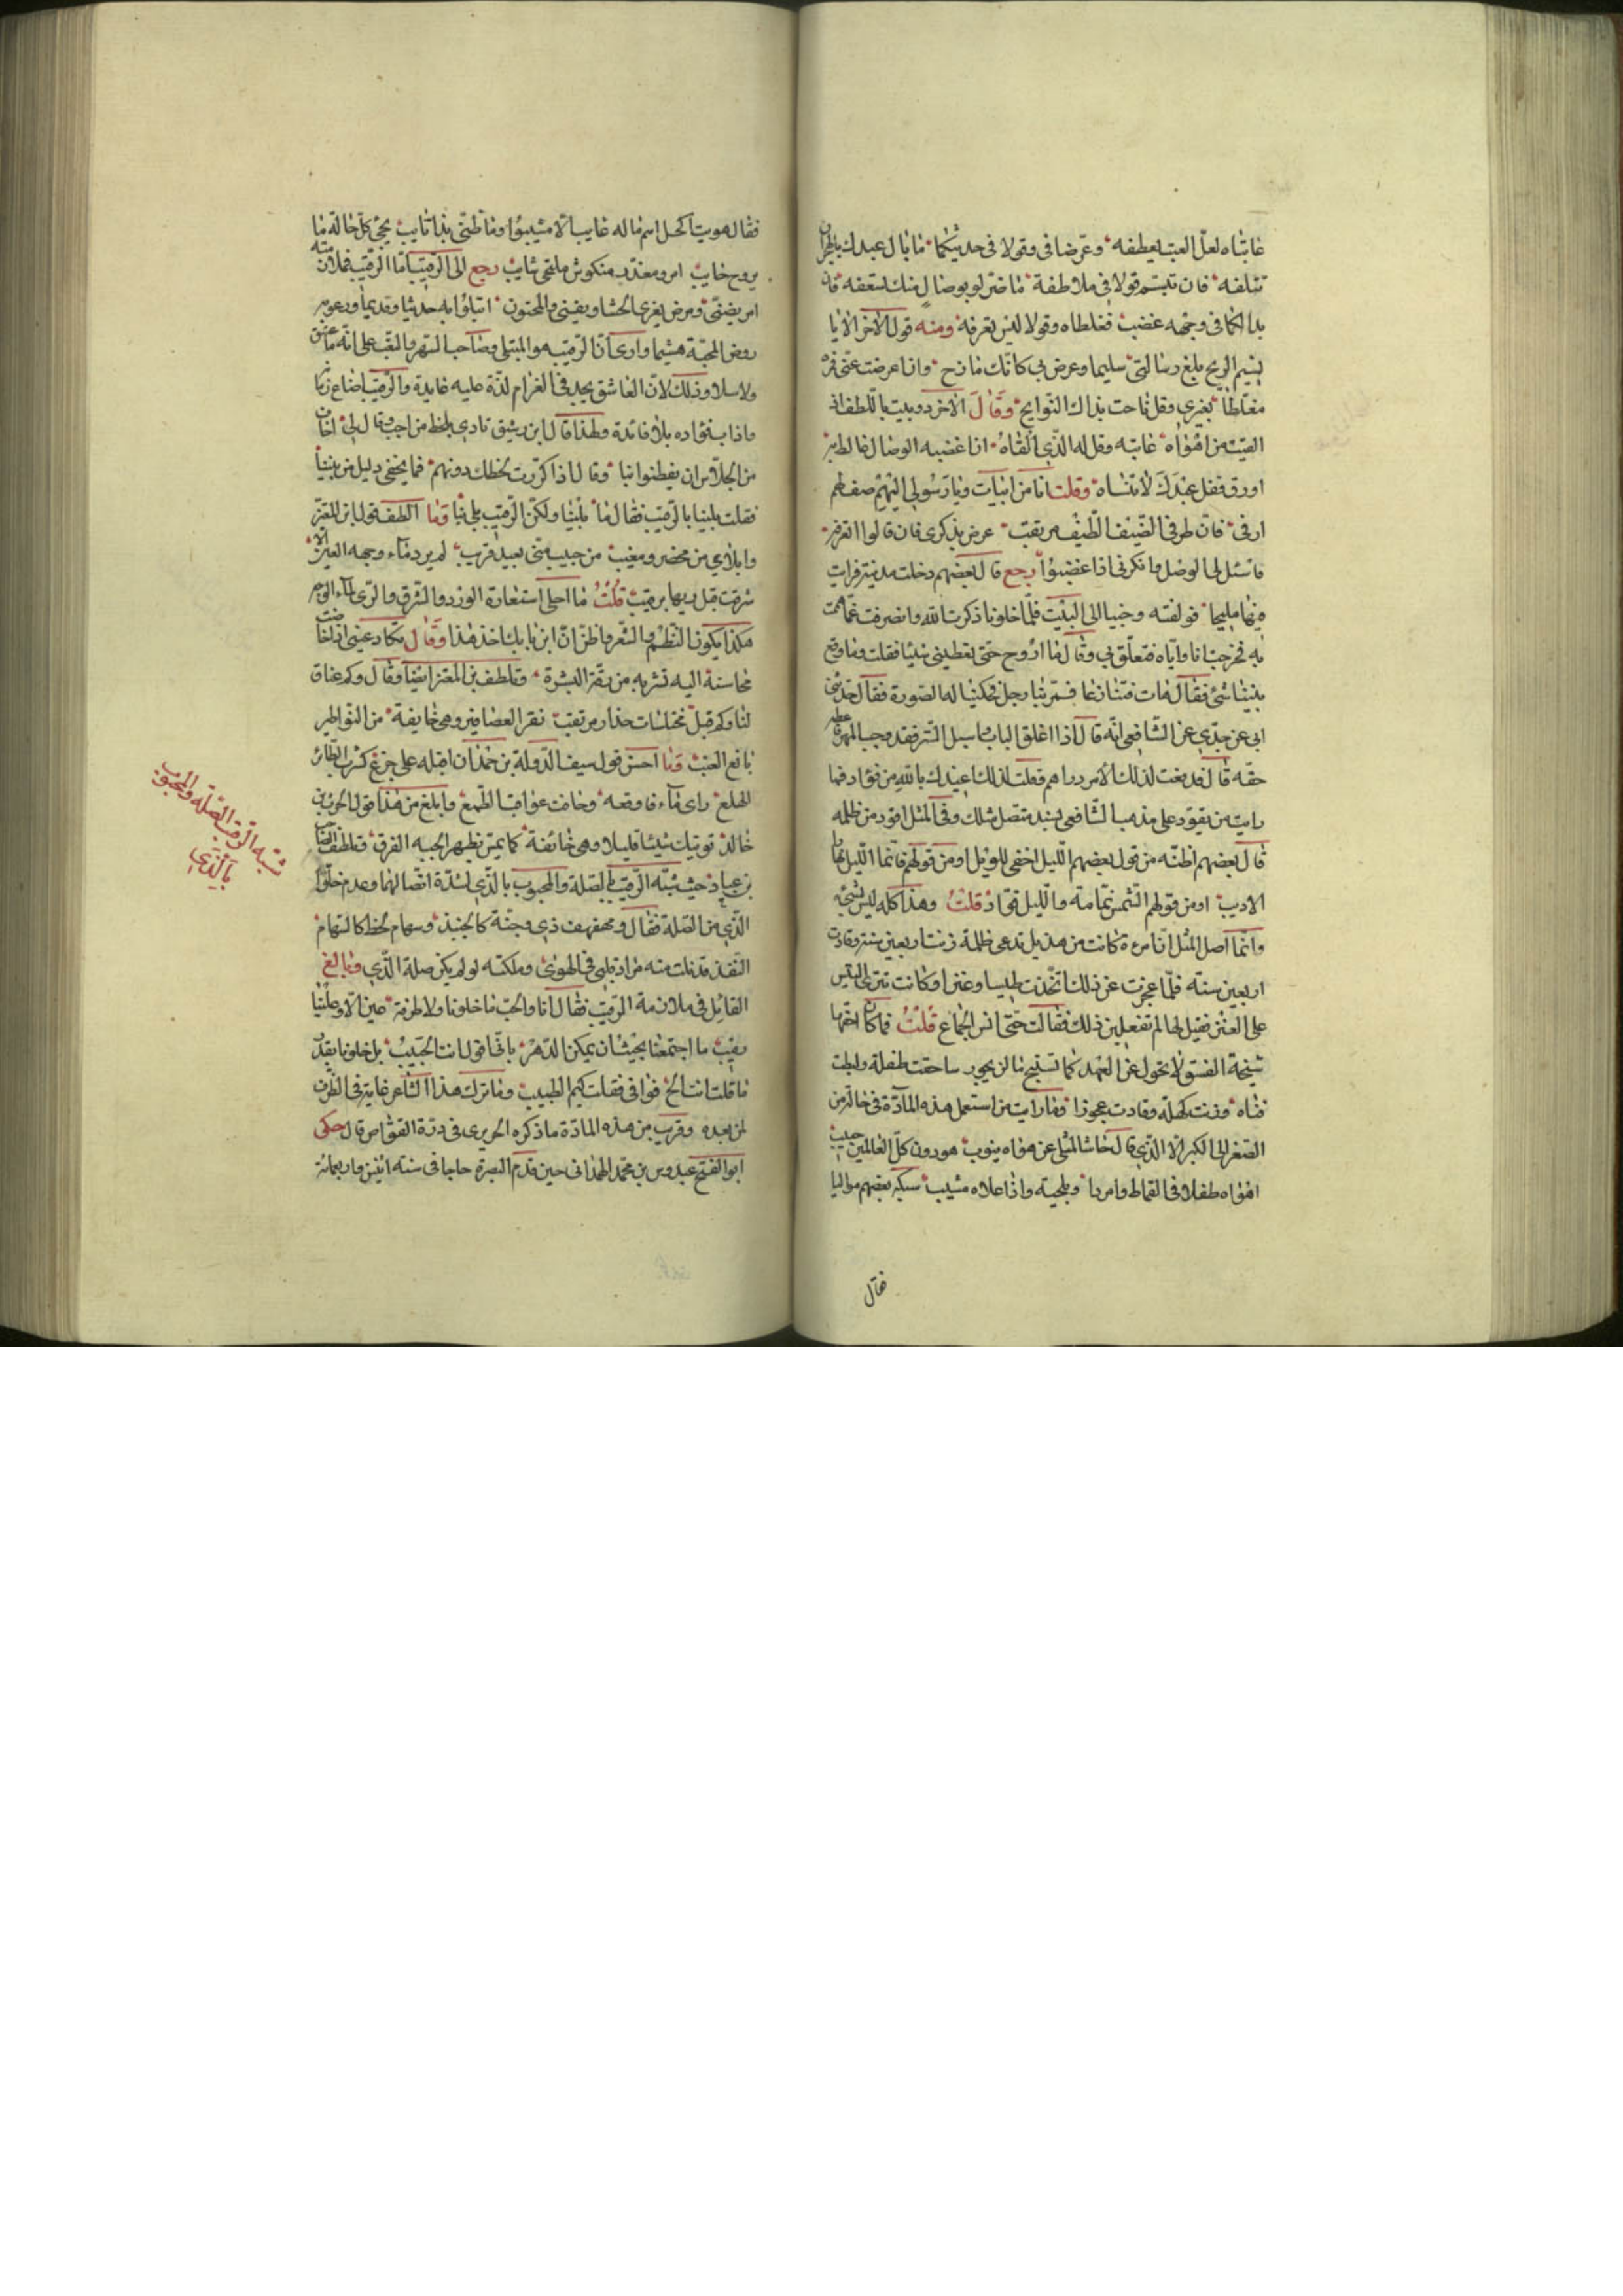 عاتباه لعل العتب يعطفه وعرضا في وقولا في حديثكما ما بال عبدك بالهجران
تتلفه فان تبسم قولا في ملاطفة ما ضر لو بوصال منك تسعفه فان
بدا لكما في وجهه غضب فغلطاه وقولا ليس يعرفه ومنه قول الآخر الا يا
نسيم الريح بلغ رسالتي سليما وعرض بي كانك مازح وان اعرضت عني فره
مغالطا بغيري وقل ناحت بذاك النوايح وقال الآخر دوبيت باللطف اذا
لقيت من اهواه عاتبه وقل له الذي القاه ان اغضبه الوصال غالطه به
اورق فقل عبدك لا تنساه وقلت انا من ابيات ويا رسولي اليهم صف لهم
ارقي فان طرفي لضيف الطيف مرتقب عرض بذكري فان قالوا اتعرفه
فاسئل لي الوصل وانكرني اذا غضبوا رجع قال بعضهم دخلت مدينة فرايت
فيها مليحا فولفته وجئنا الى البيت فلما خلونا ذكرت الله وانصرفت عما هممت
به فخرجت انا واياه فتعلق بي وقال ما اروح حتى تعطيني شيئا فقلت وما وقع
بيننا شئ فقال هات فتنازعنا فمر بنا رجل فحكينا له الصورة فقال حدثني
ابي عن جدي عن الشافعي انه قال اذا اغلق الباب واسبل الستر فقد وجب المهر فاعطه
حقه قال فدفعت لذلك الامرد دراهم فقلت لذلك اعيذك بالله من قواد فما
رايت من يقود على مذهب الشافعي بسند متصل مثلك وفي المثل اقود من ظلمه
قال بعضهم اظنه من قول بعضهم الليل اخفى للويل او من قولهم فانما الليل نهار
الاديب او من قولهم الشمس نمامة والليل قواد قلت وهذا كله ليس بشئ
وانما اصل المثل ان امرءة كانت من هذيل تدعى ظلمة زنت اربعين سنة وقادت
اربعين سنة فلما عجزت عن ذلك اتخذت طيسا وعنزا وكانت تنزي التيس
على العنز فقيل لها لم تفعلين ذلك فقالت حتى اسمع انفاس الجماع قلت فما كان احقها
شيخة الفسق لا تحول عن العهد كما تستبيح ما لن يجوز ساحقت طفلة ولبطت
فتاه وزنت كهلة وقادت عجوزا وما رايت من استعمل هذه المادة في حالة من
الصغر الى الكبر الا الذي قال حاشا لمثلي عن هواه يتوب هو دون كل العالمين حبيب
اهواه طفلا في القماط وامردا وبلحية واذا علاه مشيب سبكه بعضهم مواليا
فقال
فقال هويت اكحل اسم ماله عايب الا مشيبوا وما ظني بذا تايب يجي كل حالة ما
يروح خايب امرد ومعذر منكوش ملتحي شايب رجع الى الرقيب اما الرقيب فملازمته
امر يضني ومرض يغري الحشا ويفني والمحبون ابتلوا به حديثا وقديما ورعوا به
روض المحبة هشيما وارى ان الرقيب هو المبتلي وصاحب السهر والتعب على انه ما عشق
ولا سلا وذلك لان العاشق يجد في الغرام لذة عليه عايدة والرقيب اضاع زمانه
واذاب فؤاده بلا فائدة ولهذا قال ابن رشيق نادى بلحظ من احب وقال لي اخاف
من الجلاس ان يفطنوا بنا وقال اذا كررت لحظك دونهم فما يخفى دليل من بيننا
فقلت بلينا بالرقيب فقال ما بلينا ولكن الرقيب بلي بنا وما الطف قول ابن المعتز
وابلاي من محضر ومغيب من حبيب مني بعيد قريب لم يرد ماء وجهه العين الا
شرقت قبل ريها برقيب قلت ما احلى استعارة الورد والشرق والري لماء الوجه
هكذا يكون النظم والشعر واظن ان ابن بابك اخذ هذا وقال تكاد عيني اذا خاضت
محاسنه اليه تشربه من رقة البشرة وتلطف بن المعتز ايضا وقال وكم عناق
لنا وكم قبل مختلسات حذار مرتقب نقر العصافير وهي خايفة من النواطير
يانع العنب وما احسن قول سيف الدولة بن حمدان اقبله على جزع كشرب الطائر
الهلع راى ماء فاوقعه وخاف عواقب الطمع وابلغ من هذا قول الحر بن
خالد توتيك شيئا قليلا وهي خائفة كما يمس بظهر الحية الفرق وتلطف الصاحب
بن عباد حيث شبه الرقيب بالصلة والمحبوب بالذي لشدة اتصالهما وعدم خلو
الذي من الصلة فقال ومهفهف ذي وجنة كالجنبذ وسهام لحظ كالسهام
النفذ قد نلت منه مراد قلبي في الهوى وملكته لو لم يكن صلة الذي وبالغ
القائل في ملازمة الرقيب فقال انا والحب ما خلونا ولا طرفة عين الا وعلينا
رقيب ما اجتمعنا بحيث ان يمكن الدهر باني اقول انت الحبيب بل خلونا بقدر
ما قلت انت الح فوافى فقلت كيم الطبيب وما ترك هذا الشاعر غاية في الظرف
لمن بعده وقريب من هذه المادة ما ذكره الحريري في درة الغواص قال حكى
ابو الفتح عبدوس بن محمد الهمذاني حين قدم البصرة حاجا في سنة اثنين واربعمائة
شبه الرقيب بالصلة والمحبوب
بالذي